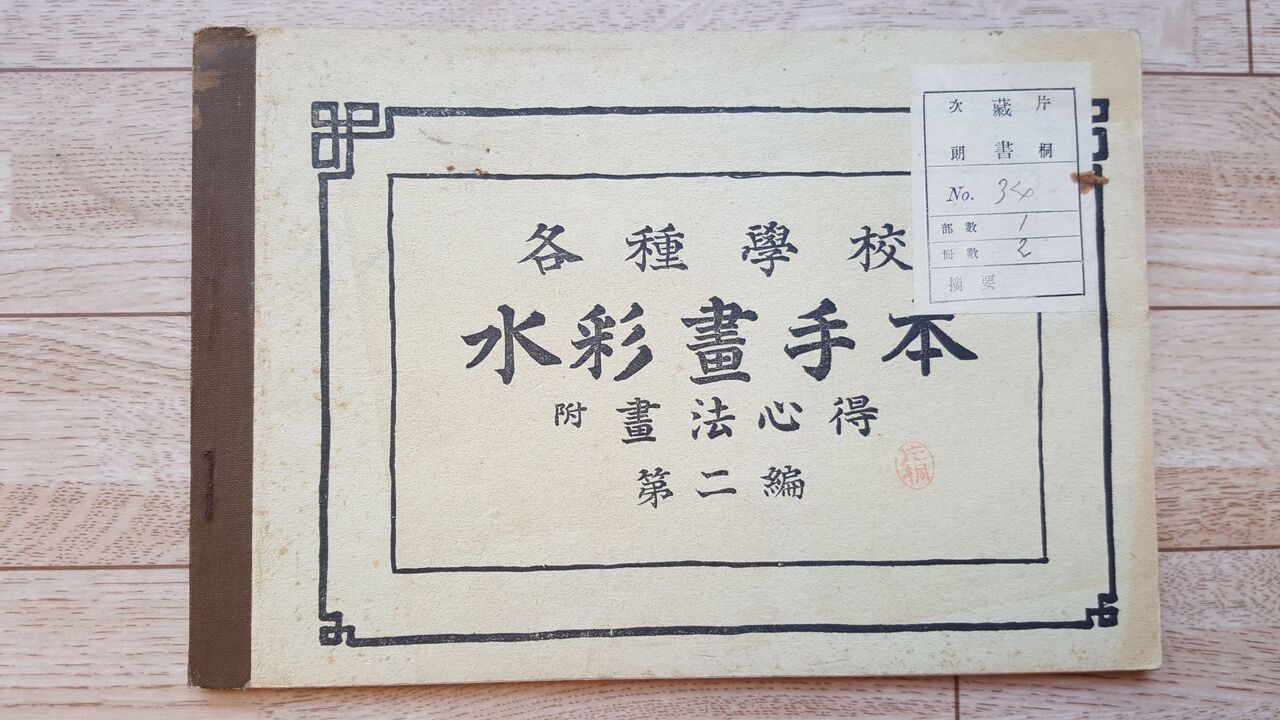 各種學校
水彩畫手本
附畫法心得
第二編
片桐
藏書
次朗
No. 34
部數 1
冊數 2
摘要
片桐